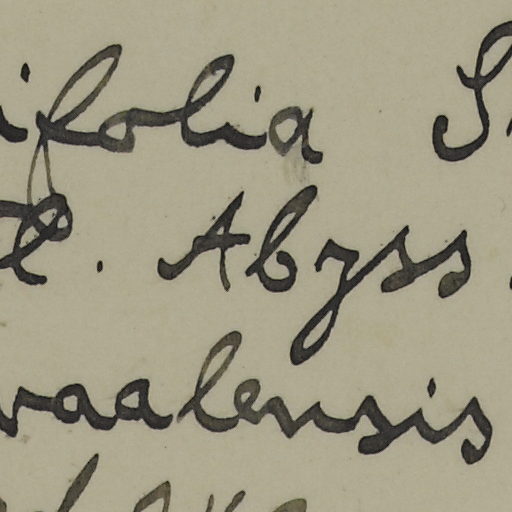 ifolia S
l. Abyss.
vaalensis